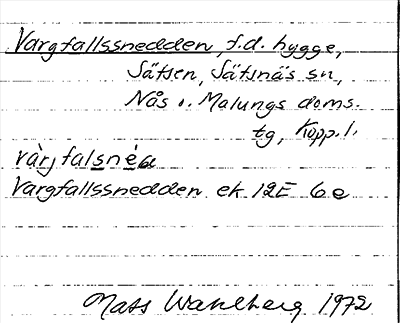 Vargfallssnedden, f.d. hygge,
Sätsen, Sätsnäs sn,
Nås o. Malungs doms.
tg, Kopp. l.
vàrjfalsnèa
Vargfallssnedden ek 12E 6e
Mats Wahlberg 1972